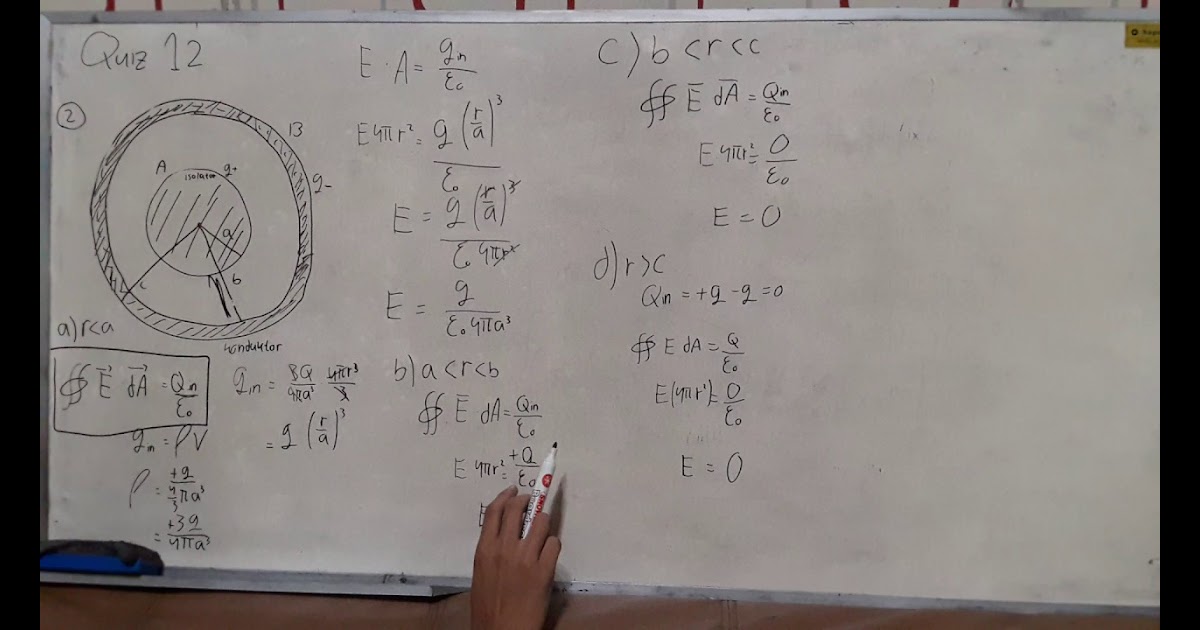 Quiz 12
2
A
isolator
q+
13
q-
a
b
c
konduktor
a) r<a
∯ E⃗ dA⃗ = Qin/ε₀
qin = ρV
ρ = +q / 4/3 πa³
= +3q / 4πa³
qin = 3Q/4πa³ 4πr³/3
= q (r/a)³
E · A = qin/ε₀
E 4πr² = q (r/a)³ / ε₀
E = q (r/a)³ / ε₀ 4πr²
E = q / ε₀ 4πa³
b) a<r<b
∯ E̅ dA = Qin/ε₀
E 4πr² = +Q/ε₀
E
c) b<r<c
∯ E̅ dA̅ = Qin/ε₀
E 4πr² = 0/ε₀
E = 0
d) r>c
Qin = +q -q = 0
∯ E dA = Q/ε₀
E(4πr²) = 0/ε₀
E = 0